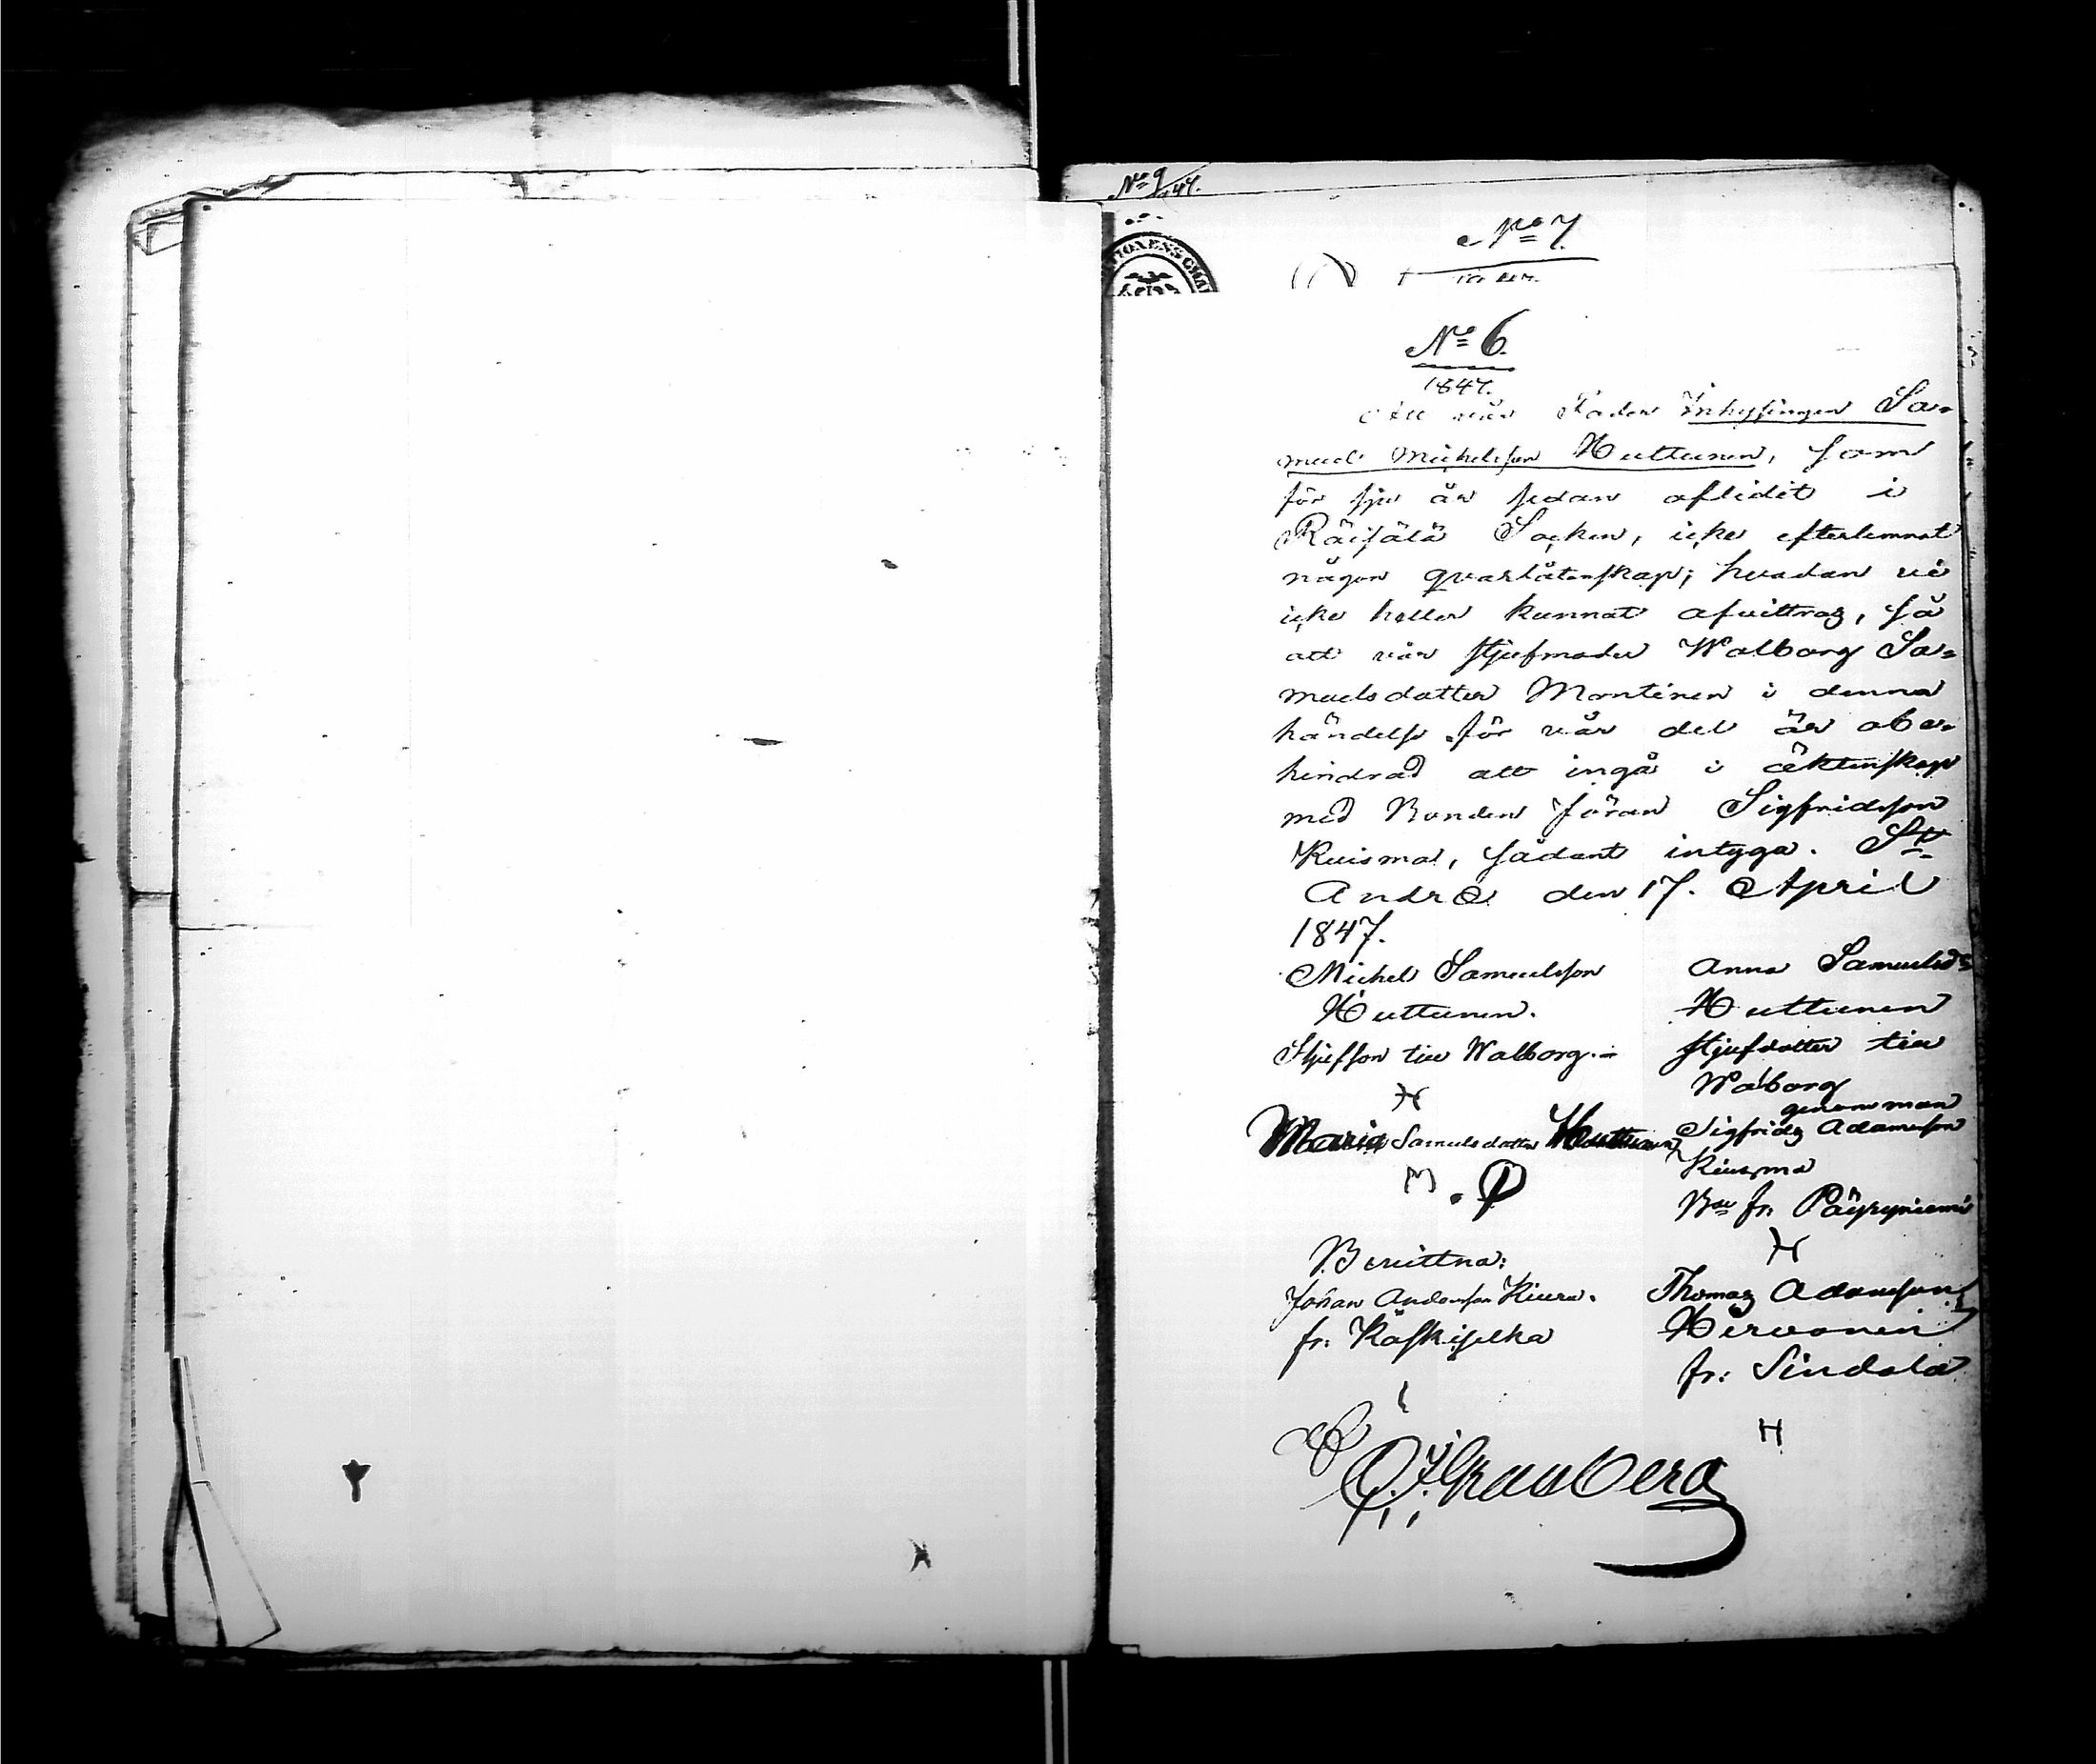 No 9/47.
No 7
No 6.
1847.
Att vår Fader Inhysingen Sa=
muel Michelsson Huttunen, som
för sju år sedan aflidit i
Räisälä Socken, icke efterlemnat
någon qvarlåtenskap; hvadan vi
icke heller kunnat afvittras, så
att vår stjufmoder Walborg Sa=
muelsdotter Montinen i denna
händelse för vår del är obe=
hindrad att ingå i äktenskap
med Bonden Jöran Sigfridsson
Kuisma, sådant intyga. St.
Andræ den 17. April
1847.
Michel Samuelsson
Huttunen.
Stjufson till Walborg.
Anna Samuelsd:r
Huttunen
stjufdotter till
Walborg
genom man
Sigfrids Adamsson
Kuisma
Maria Samuelsdotter Huttunen
Bn fr. Päyryniemi
Bevittna:
Jöran Andersson Kiuru.
fr. Käskiselkä
Thomas Adamsson
Hirvonen
fr: Sindola